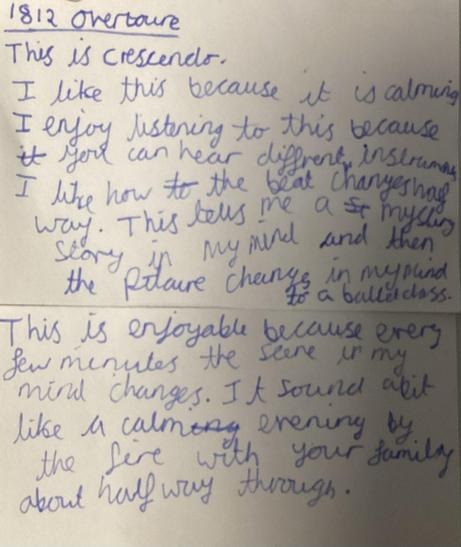 1812 Overtoure
This is crescendo.
I like this because it is calming
I enjoy listening to this because
it you can hear diffrent, insturums
I like how to the beat changes half
way. This tells me a st mystery
story in my mind and then
the pitaure change in my mind
to a ballet class.
This is enjoyable because every
few menutes the scene in my
mind changes. It sound abit
like a calming evening by
the fire with your family
about half way through.